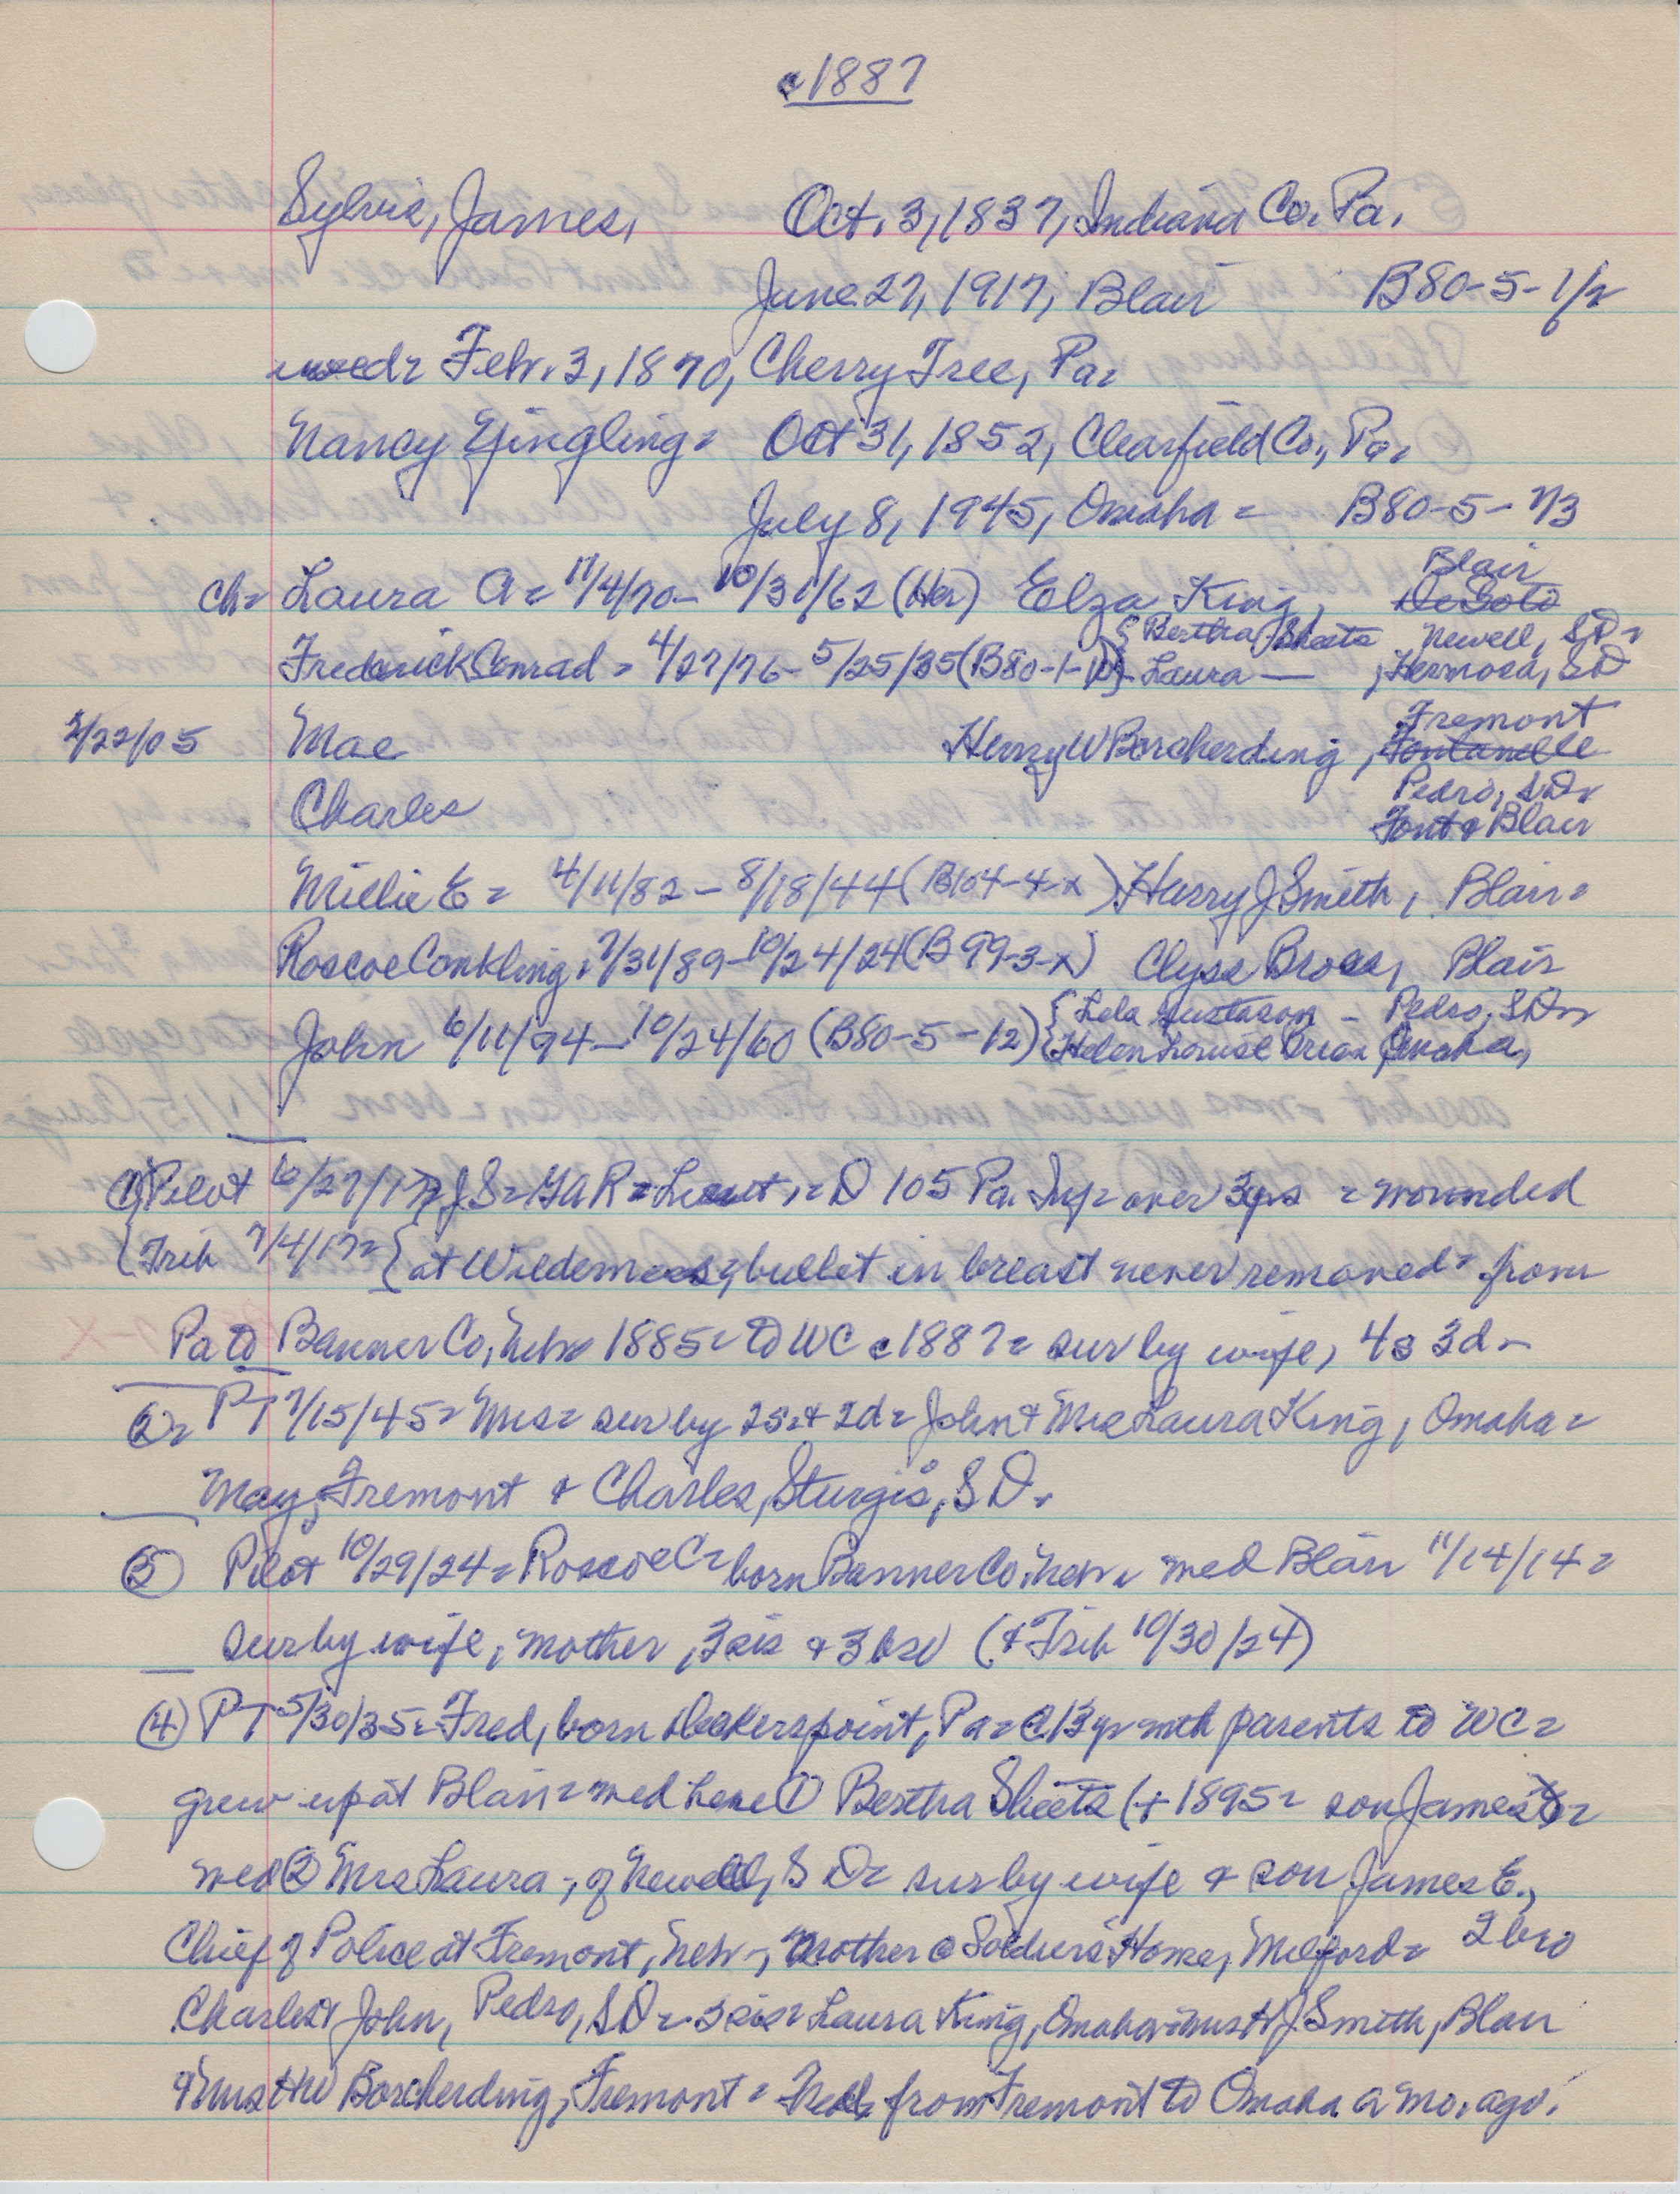 c1887
Sylvis, James, Oct. 3, 1837, Indiana Co. Pa.
June 27, 1917, Blair B80-5-1/2
wed= Feb. 3, 1870, Cherry Tree, Pa=
Nancy Yingling= Oct 31, 1852, Clearfield Co., Pa.
July 8, 1945, Omaha = B80-5-1/3
Blair
ch= Laura A= 11/4/70- 10/31/62 (Her) Elza King, DeSoto
{Bertha Sheets Newell, SD=
Frederick Conrad = 4/27/76- 5/25/35 (B80-1-10) Laura — , Hermosa, SD
Fremont
2/22/05 Mae Henry W Borcherding, Fontanelle
Pedro, SD=
Charles Font & Blair
Millie E= 4/11/82 - 8/18/44 (B104-4-x) Harry J Smith, Blair=
Roscoe Conkling, 7/31/89-10/24/24 (B99-3-x) Clyse Bross, Blair
{Lela Gustason - Pedro, SD=
John 6/11/94-10/24/60 (B80-5-12) {Helen Louise Omaha,
(1) Pilot 6/27/17= JS= GAR= Lieut,= D 105 Pa. Inf= over 3yrs = wounded
{Trib 7/4/17= {at Wilderness, bullet in breast never removed= from
Pa to Banner Co, Nebr 1885= to WC c1887= sur by wife, 4s 3d-
(2)= PT 7/15/45= Mrs= sur by 2s & 2d= John & Mrs Laura King, Omaha=
May, Fremont & Charles, Sturgis, SD.
(3) Pilot 10/29/24= Roscoe C= born Banner Co, Nebr, med Blair 11/14/14=
sur by wife, mother, 3 sis & 3 bro (& Trib 10/30/24)
(4) PT 5/30/35= Fred, born Beckerspoint, Pa= @ 13 yr with parents to WC=
grew up at Blair= med here (1) Bertha Sheets (+ 1895= son James)=
med (2) Mrs Laura -, of Newell, SD= sur by wife & son James E.,
Chief of Police at Fremont, Nebr-, mother @ Soldiers Home, Milford= 2 bro
Charles & John, Pedro, SD= 3 sis= Laura King, Omaha= Mrs HJ Smith, Blair
& Mrs HW Borcherding, Fremont= from Fremont to Omaha a mo. ago.